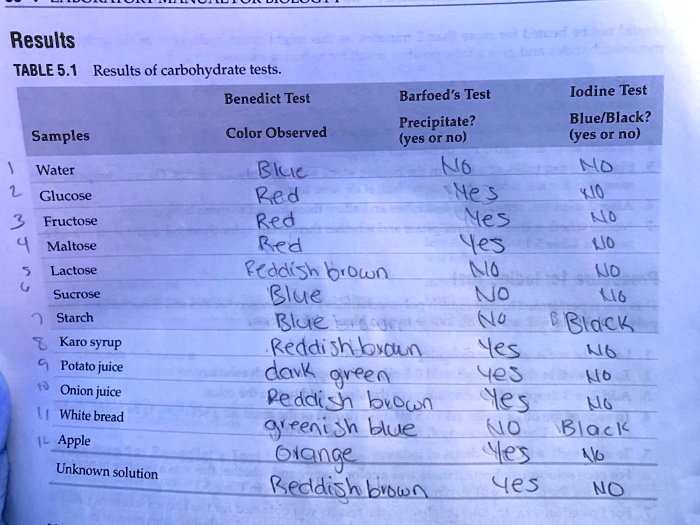 Results
TABLE 5.1 Results of carbohydrate tests.
Benedict Test Barfoed's Test Iodine Test
Precipitate? Blue/Black?
Samples Color Observed (yes or no) (yes or no)
1 Water Blue No NO
2 Glucose Red Yes NO
3 Fructose Red Yes NO
4 Maltose Red Yes NO
5 Lactose Reddish brown NO NO
6 Sucrose Blue NO NO
7 Starch Blue No Black
8 Karo syrup Reddish brown Yes NO
9 Potato juice dark green yes NO
10 Onion juice Reddish brown Yes NO
11 White bread greenish blue NO Black
12 Apple Orange Yes No
Unknown solution Reddish brown yes NO